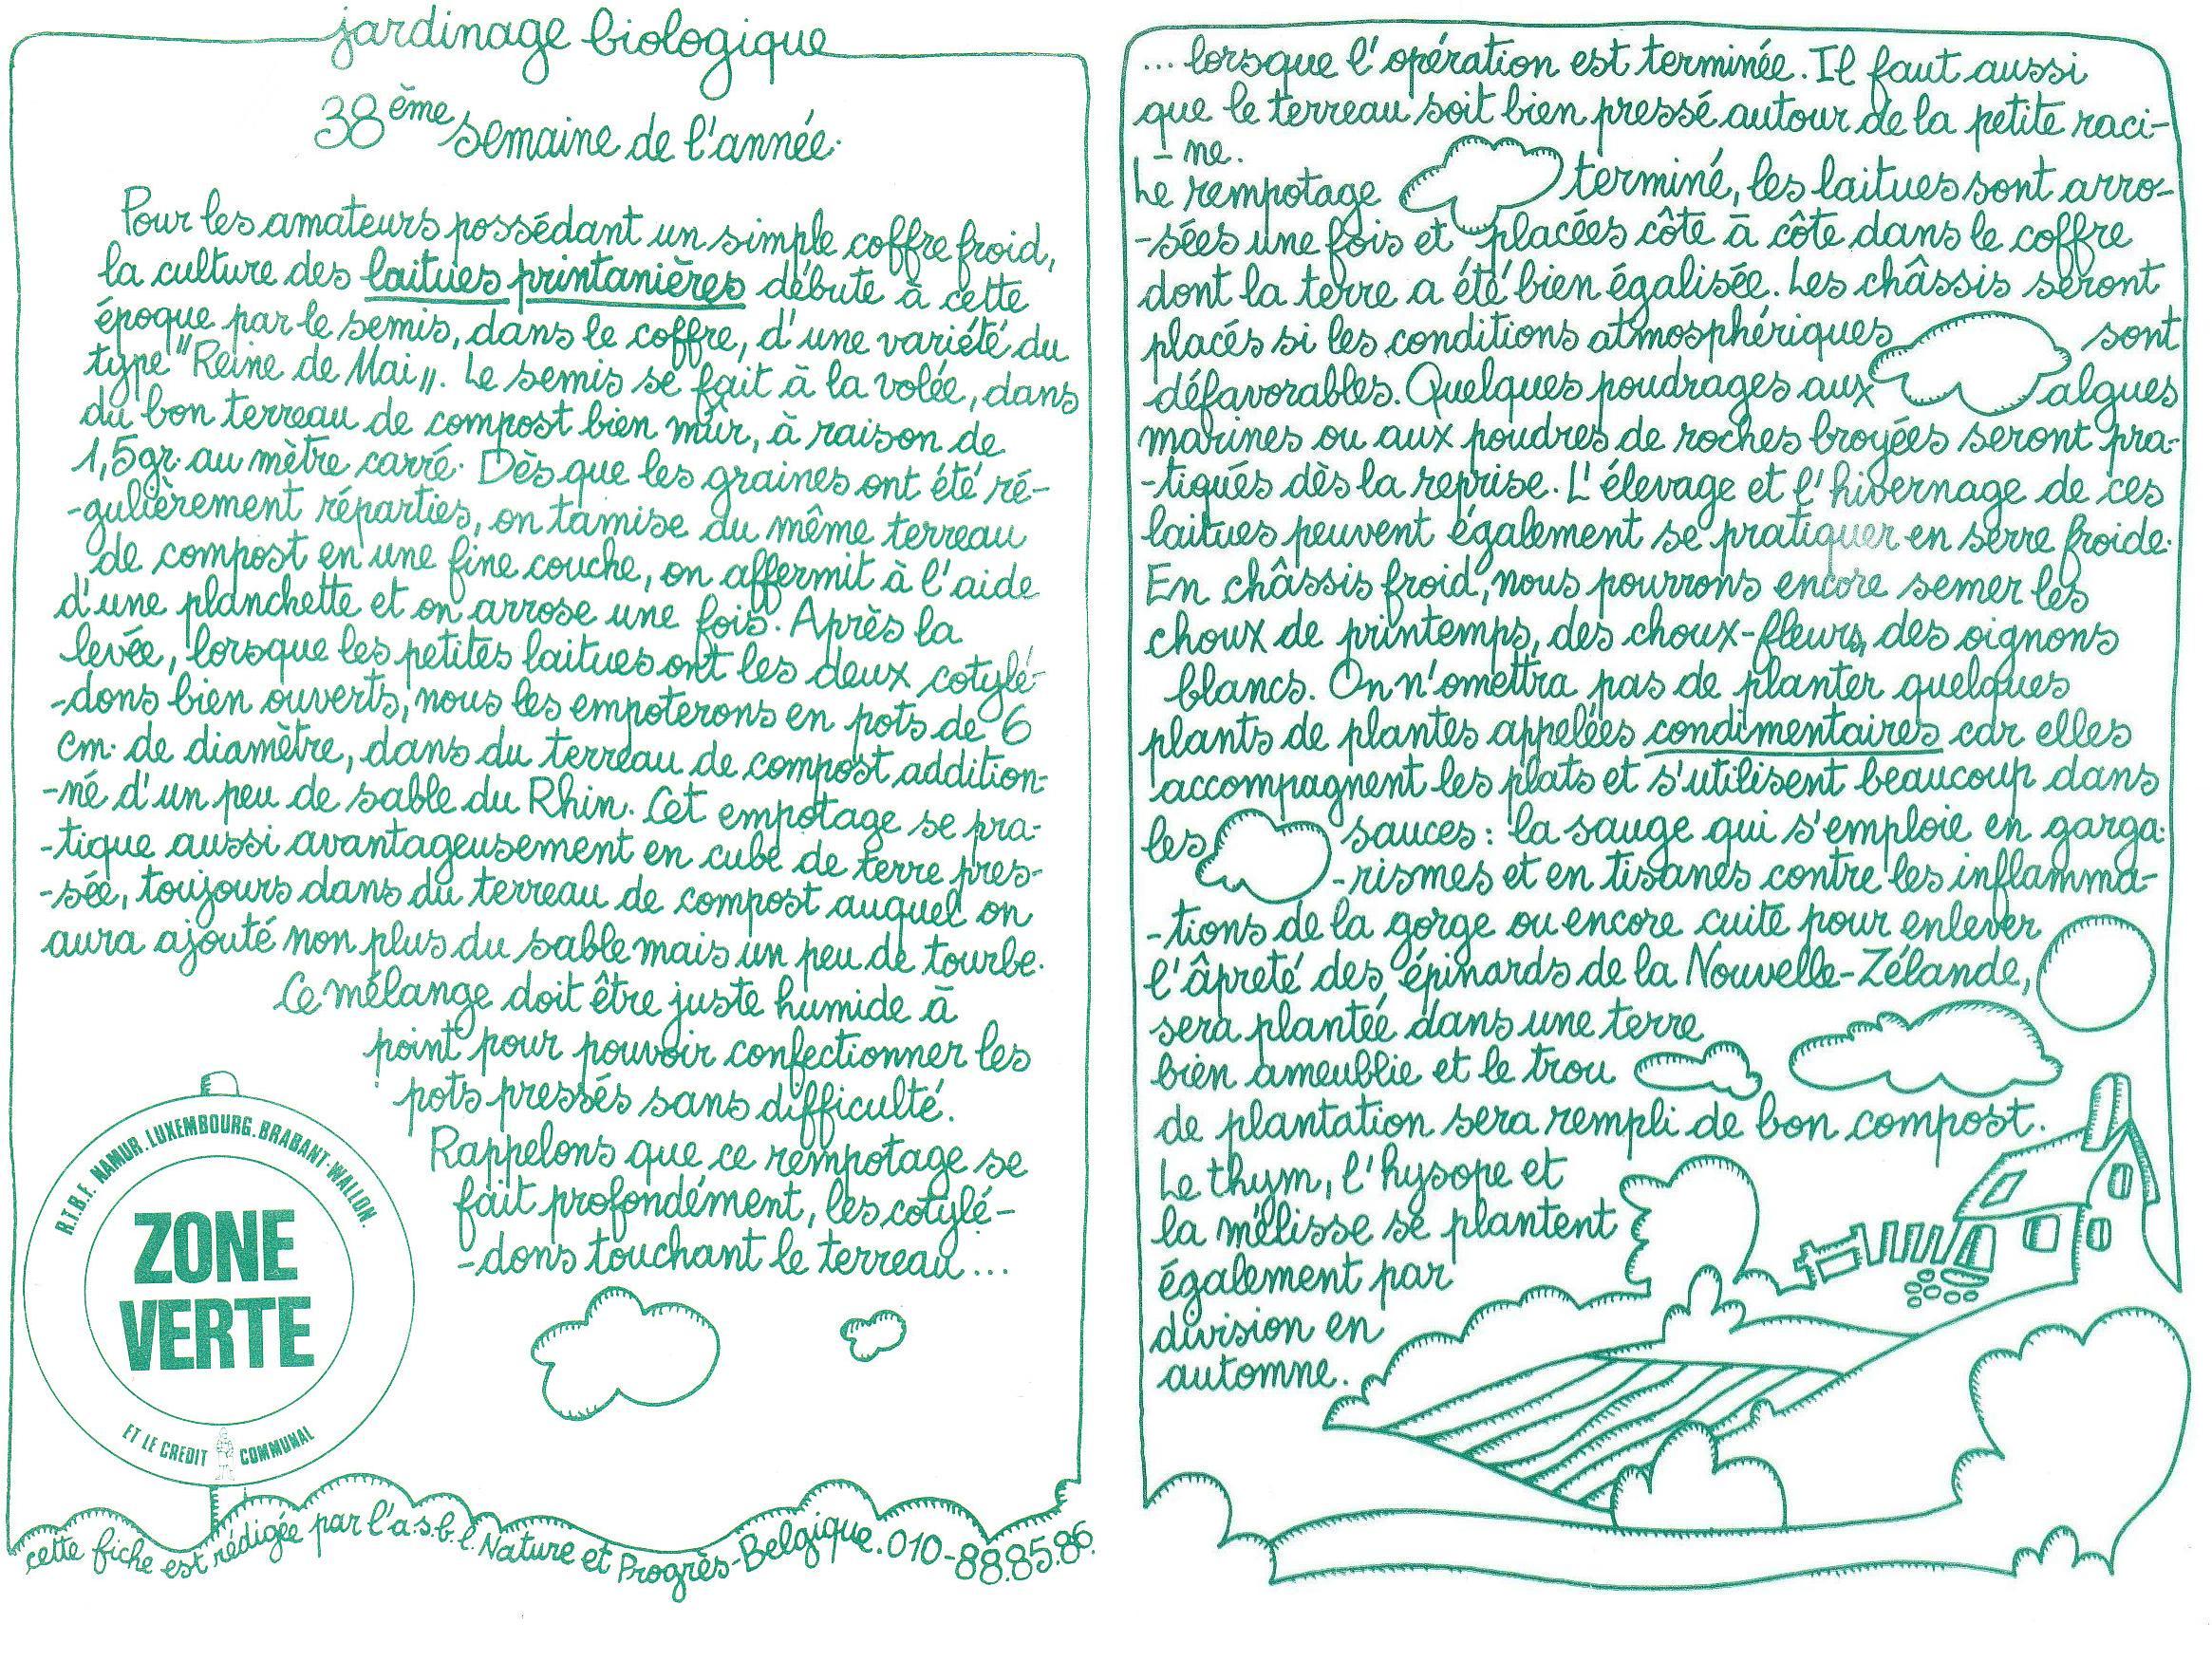 jardinage biologique
38ème semaine de l'année.
Pour les amateurs possédant un simple coffre froid,
la culture des laitues printanières débute à cette
époque par le semis, dans le coffre, d'une variété du
type "Reine de Mai". Le semis se fait à la volée, dans
du bon terreau de compost bien mûr, à raison de
1,5gr. au mètre carré. Dès que les graines ont été ré-
-gulièrement réparties, on tamise du même terreau
de compost en une fine couche, on affermit à l'aide
d'une planchette et on arrose une fois. Après la
levée, lorsque les petites laitues ont les deux cotylé-
-dons bien ouverts, nous les empoterons en pots de 6
cm. de diamètre, dans du terreau de compost addition-
-né d'un peu de sable du Rhin. Cet empotage se pra-
-tique aussi avantageusement en cube de terre pres-
-sée, toujours dans du terreau de compost auquel on
aura ajouté non plus du sable mais un peu de tourbe.
Ce mélange doit être juste humide à
point pour pouvoir confectionner les
pots pressés sans difficulté.
Rappelons que ce rempotage se
fait profondément, les cotylé-
-dons touchant le terreau...
R.T.B.F. NAMUR. LUXEMBOURG. BRABANT-WALLON.
ZONE
VERTE
ET LE CREDIT COMMUNAL
cette fiche est rédigée par l'a.s.b.l. Nature et Progrès-Belgique. 010-88.85.86.
... lorsque l'opération est terminée. Il faut aussi
que le terreau soit bien pressé autour de la petite raci-
- ne.
Le rempotage terminé, les laitues sont arro-
-sées une fois et placées côte à côte dans le coffre
dont la terre a été bien égalisée. Les châssis seront
placés si les conditions atmosphériques sont
défavorables. Quelques poudrages aux algues
marines ou aux poudres de roches broyées seront pra-
-tiqués dès la reprise. L'élevage et l'hivernage de ces
laitues peuvent également se pratiquer en serre froide.
En châssis froid, nous pourrons encore semer les
choux de printemps, des choux-fleurs, des oignons
blancs. On n'omettra pas de planter quelques
plants de plantes appelées condimentaires car elles
accompagnent les plats et s'utilisent beaucoup dans
les sauces : la sauge qui s'emploie en garga-
-rismes et en tisanes contre les inflamma-
-tions de la gorge ou encore cuite pour enlever
l'âpreté des épinards de la Nouvelle-Zélande,
sera plantée dans une terre
bien ameublie et le trou
de plantation sera rempli de bon compost.
Le thym, l'hysope et
la mélisse se plantent
également par
division en
automne.